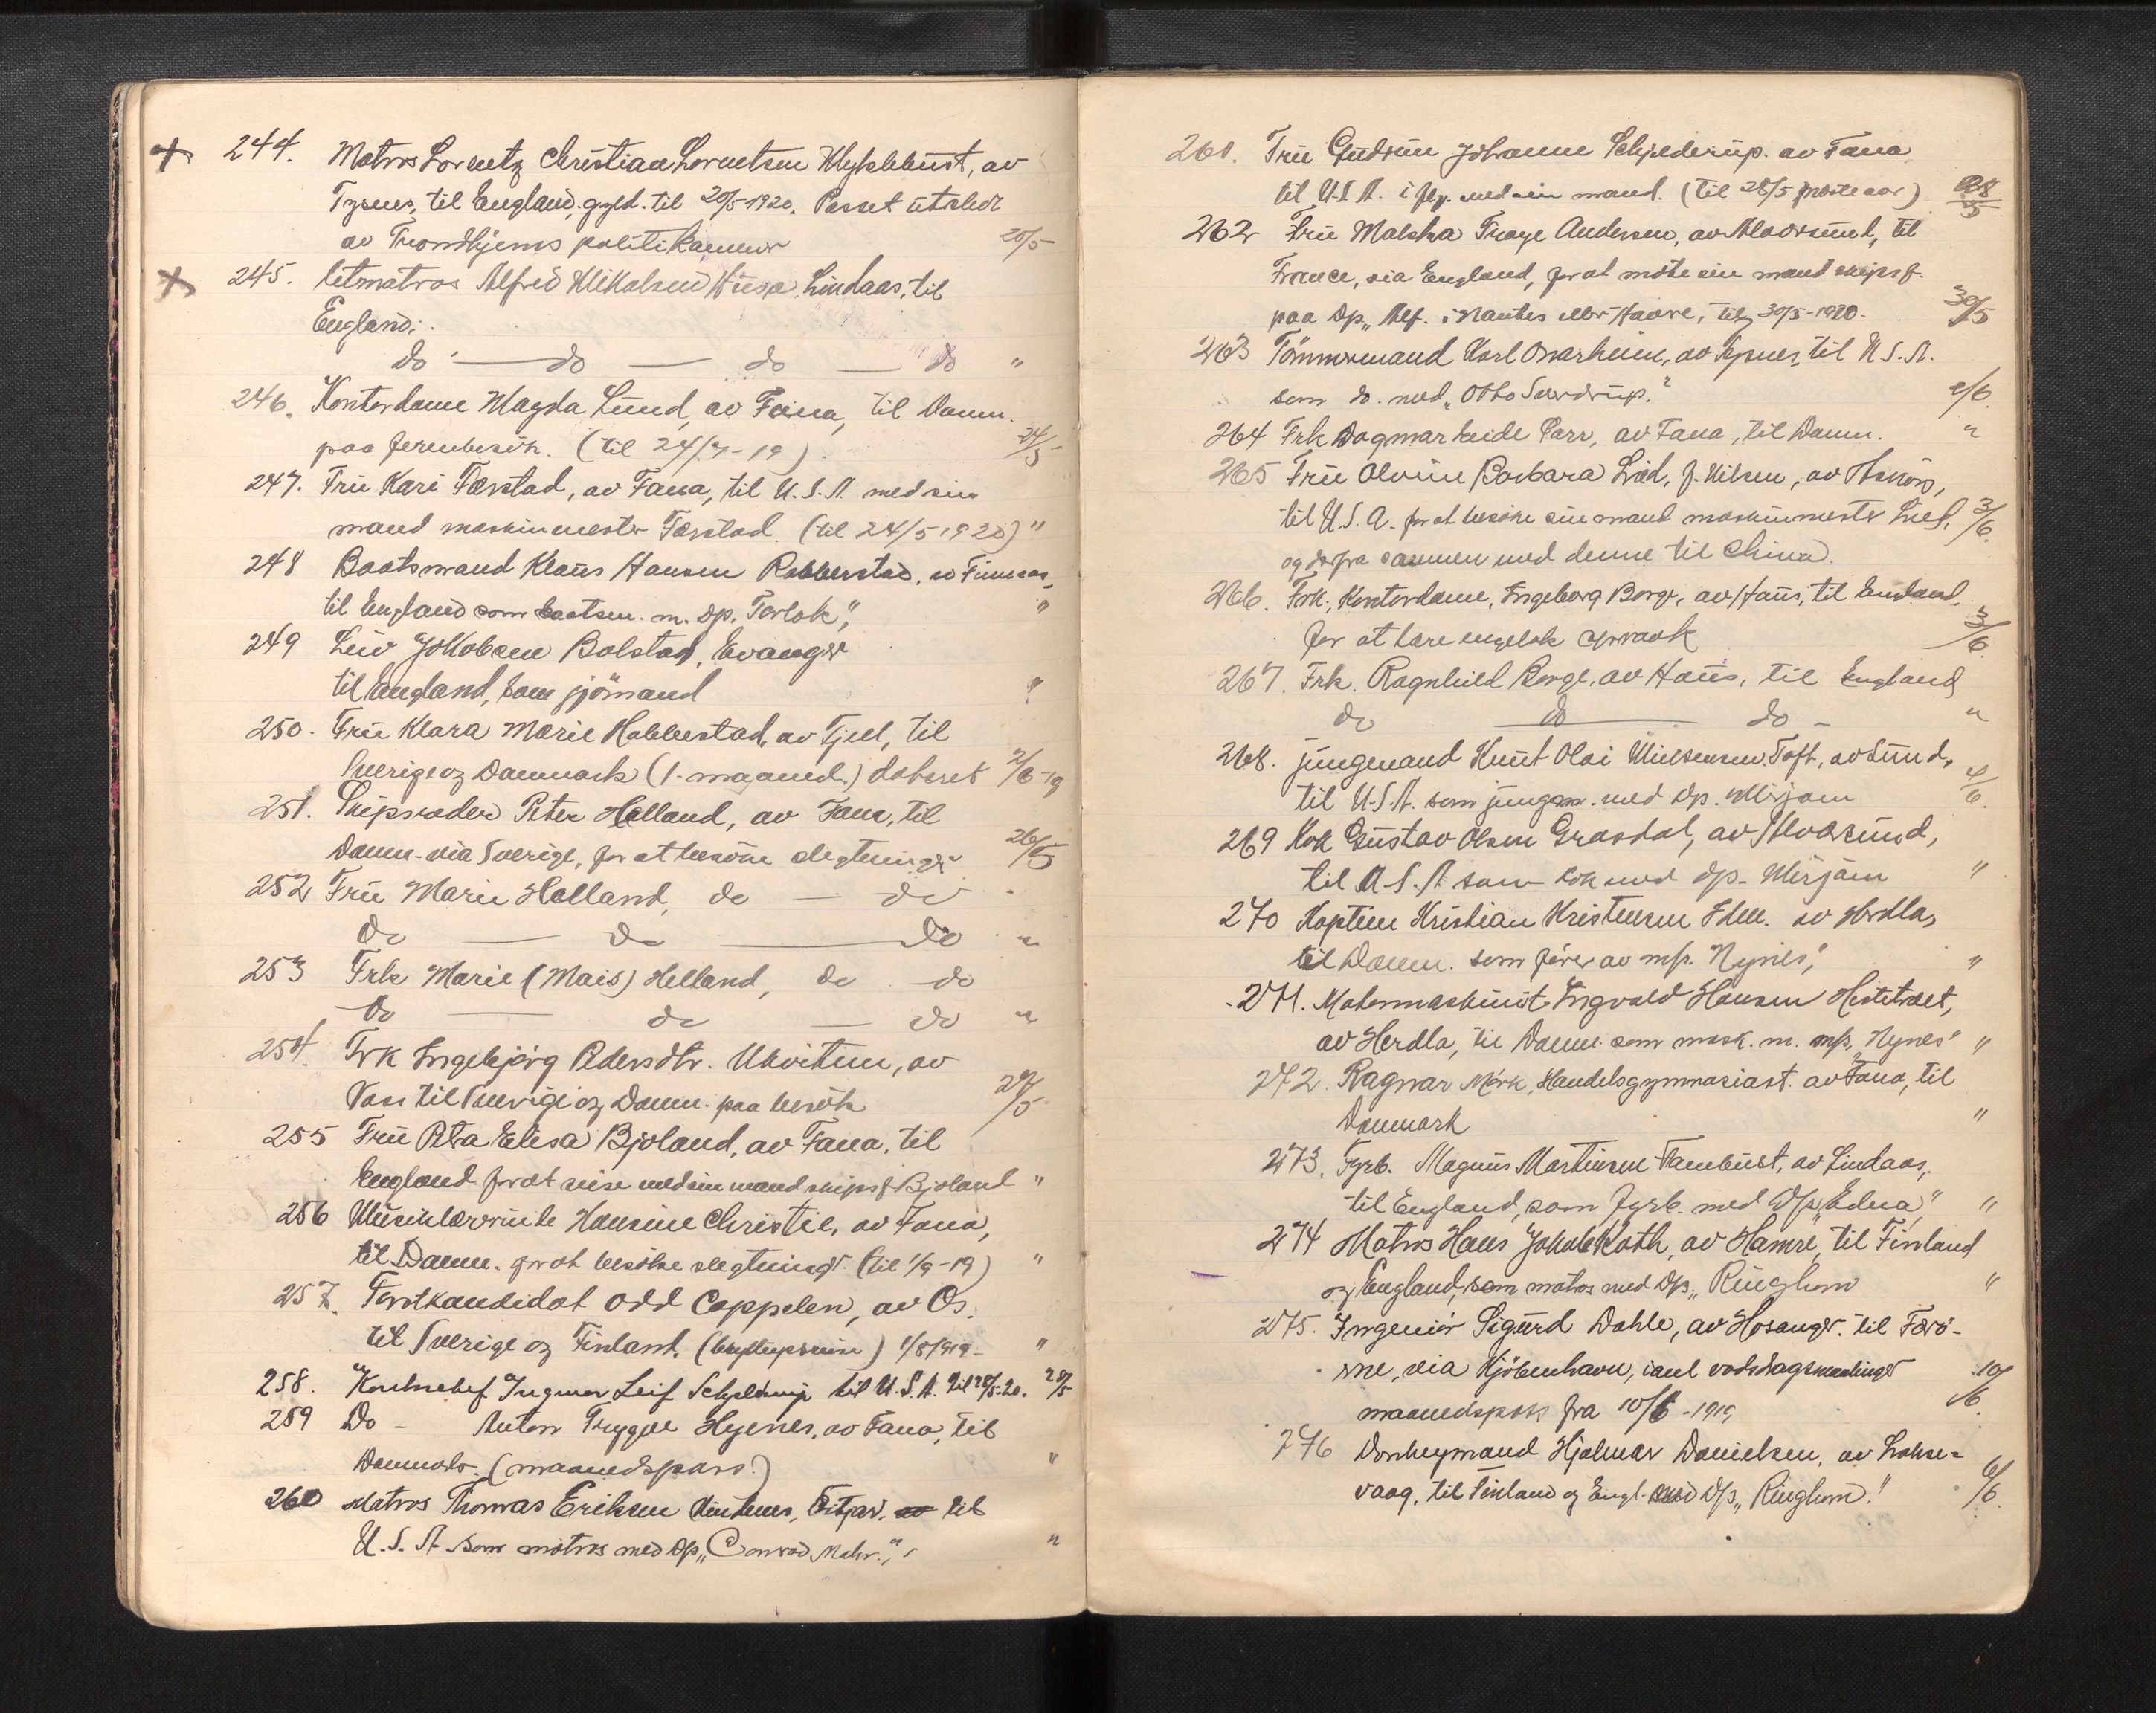 244. Matros Lorentz Christian Lorentsen Myklebust, av
Tysnes, til England, gyld. til 20/5 1920. Passet utstedt
av Trondhjems politikammer 20/5
245. Letmatros Alfred Mikalsen Husa, Lindaas, til
England.
do — do — do — do "
246. Kontordame Magda Lund, av Fana, til Danm.
paa feriebesök. (til 24/7-19) 24/5
247. Fru Kari Færstad, av Fana, til U.S.A. med sin
mand maskinmester Færstad. (til 24/5 1920) "
248 Baatsmand Klaus Hansen Rabberstad, av Finnaas,
til England som baatsm. m. Dp. "Torlak", "
249 Leiv Jakobsen Bolstad, Evanger
til England, som sjömand "
250. Fru Klara Marie Habbestad, av Fjell, til
Sverige og Danmark (1. maaned.) dateret 2/6-19
251. Skipsreder Peter Helland, av Fana, til
Danm. via Sverige, for at besöke slegtninger 26/5
252 Fru Marie Helland, do — do
do — do — do "
253 Frk Marie (Mais) Helland, do do
do — do — do "
254. Frk Ingebjörg Pedersdtr. Ukvitne, av
Voss til Sverige og Danm. paa besök 27/5
255 Fru Petra Elisa Bjoland, av Fana, til
England for at reise med sin mand skipsf. Bjoland "
256 Musiklærerinde Hansine Christie, av Fana,
til Danm. for at besöke slegtninger (til 1/9-19) "
257. Forstkandidat Odd Coppelen, av Os,
til Sverige og Finland. (bryllupsreise) 1/8 1919- "
258. Kontorchef Ingmar Leif Schjelderup til U.S.A. til 28/5-20. 28/5
259 Do - Anton Trygve Hyenes, av Fana, til
Danmark. (maanedspass.) "
260 Matros Thomas Eriksen, Fitjar, til
U.S.A. som matros med Dp. "Conrad Mohr.", "
261. Fru Gudrun Johanne Schjelderup. av Fana
til U.S.A. i fölg. med sin mand. (til 28/5 næste aar) 28/5
262 Fru Andersen, av Alversund, til
France, via England, for at möte sin mand skipsf.
paa Dp. "Alf." i Nantes eller Havre, til 30/5-1920. 30/5
263 Tömmermand Karl Onarheim, av Tysnes, til U.S.A.
som do. med "Otto Sverdrup." 2/6
264 Frk Dagmar Parr, av Fana, til Danm. "
265 Fru Alvine Barbara Lied, f. Nilsen, av Askøy,
til U.S.A. for at besöke sin mand maskinmester Lied, 3/6
og derfra sammen med denne til China.
266. Frk., Kontordame, Ingeborg Borge, av Haus, til England,
for at lære engelsk sprog 3/6
267. Frk. Ragnhild Borge, av Haus, til England,
do do do - "
268. Jungmand Knut Olai Toft, av Sund,
til U.S.A. som jungm. med Dp. Mirjam 4/6.
269 Kok Gustav Olsen Grasdal, av Alversund,
til U.S.A. som kok med Dp. Mirjam "
270 Kaptein Kristian Kristensen av Herdla,
til Danm. som förer av m/s. "Nynes", "
271. Motormaskinist Ingvald Hansen Hestetræet,
av Herdla, til Danm. som mask. m. m/s. "Nynes" "
272. Ragnar Mörk, Handelsgymnasiast. av Fana, til
Danmark "
273. Fyrb. Magnus Martinsen Fanebust, av Lindaas,
til England, som fyrb. med D/s "Edna," "
274 Matros Hans Jakob Koth, av Hamre, til Finland
og England, som matros med D/s. "Ringhorn "
275. Ingeniör Sigurd Dahle, av Hosanger. til Færö-
erne, via Kjöbenhavn,
maanedspas fra 10/6-1919 10/6
276 Donkeymand Hjalmar Danielsen, av Lakse-
vaag, til Finland og Engl. med D/s "Ringhorn." 6/6.